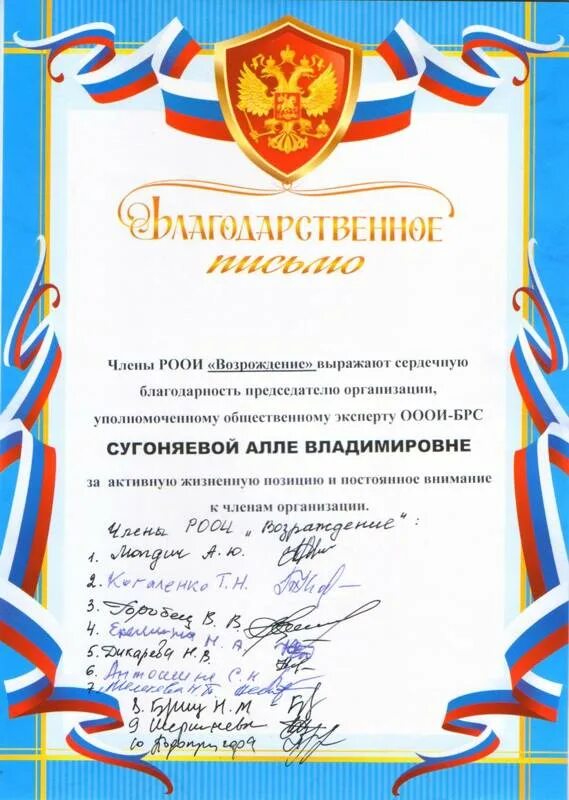 Благодарственное
письмо
Члены РООИ «Возрождение» выражают сердечную
благодарность председателю организации,
уполномоченному общественному эксперту ОООИ-БРС
СУГОНЯЕВОЙ АЛЛЕ ВЛАДИМИРОВНЕ
за активную жизненную позицию и постоянное внимание
к членам организации.
Члены РООИ „Возраждение“:
1. А.Ю.
2. Коваленко Т.Н.
3. Горобец В. В.
4. Н. А.
5. Дикарева Н.В.
6. Антошина С.Н
7.
8. Бриц Н.М
9
10